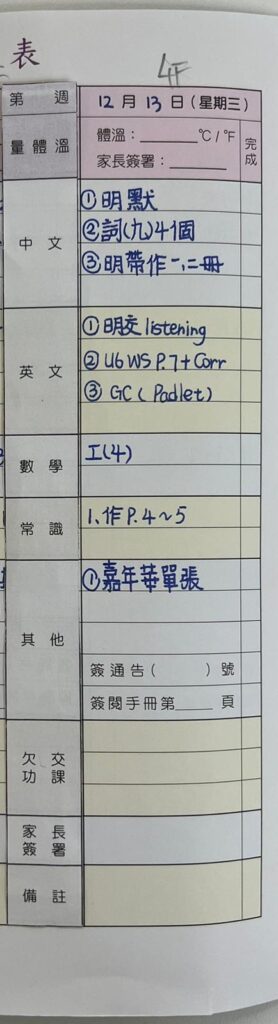 表
4F
第 週 12 月 13 日 (星期三)
量體溫 體溫：______℃/℉ 完成
家長簽署：______
中文
①明默
②詞(九)4個
③明帶作一,二冊
英文
①明交listening
②U6 WS P.7+Corr
③GC (Padlet)
數學
工(4)
常識
1、作P.4~5
其他
①嘉年華單張
簽通告( )號
簽閱手冊第____頁
欠交功課
家長簽署
備註